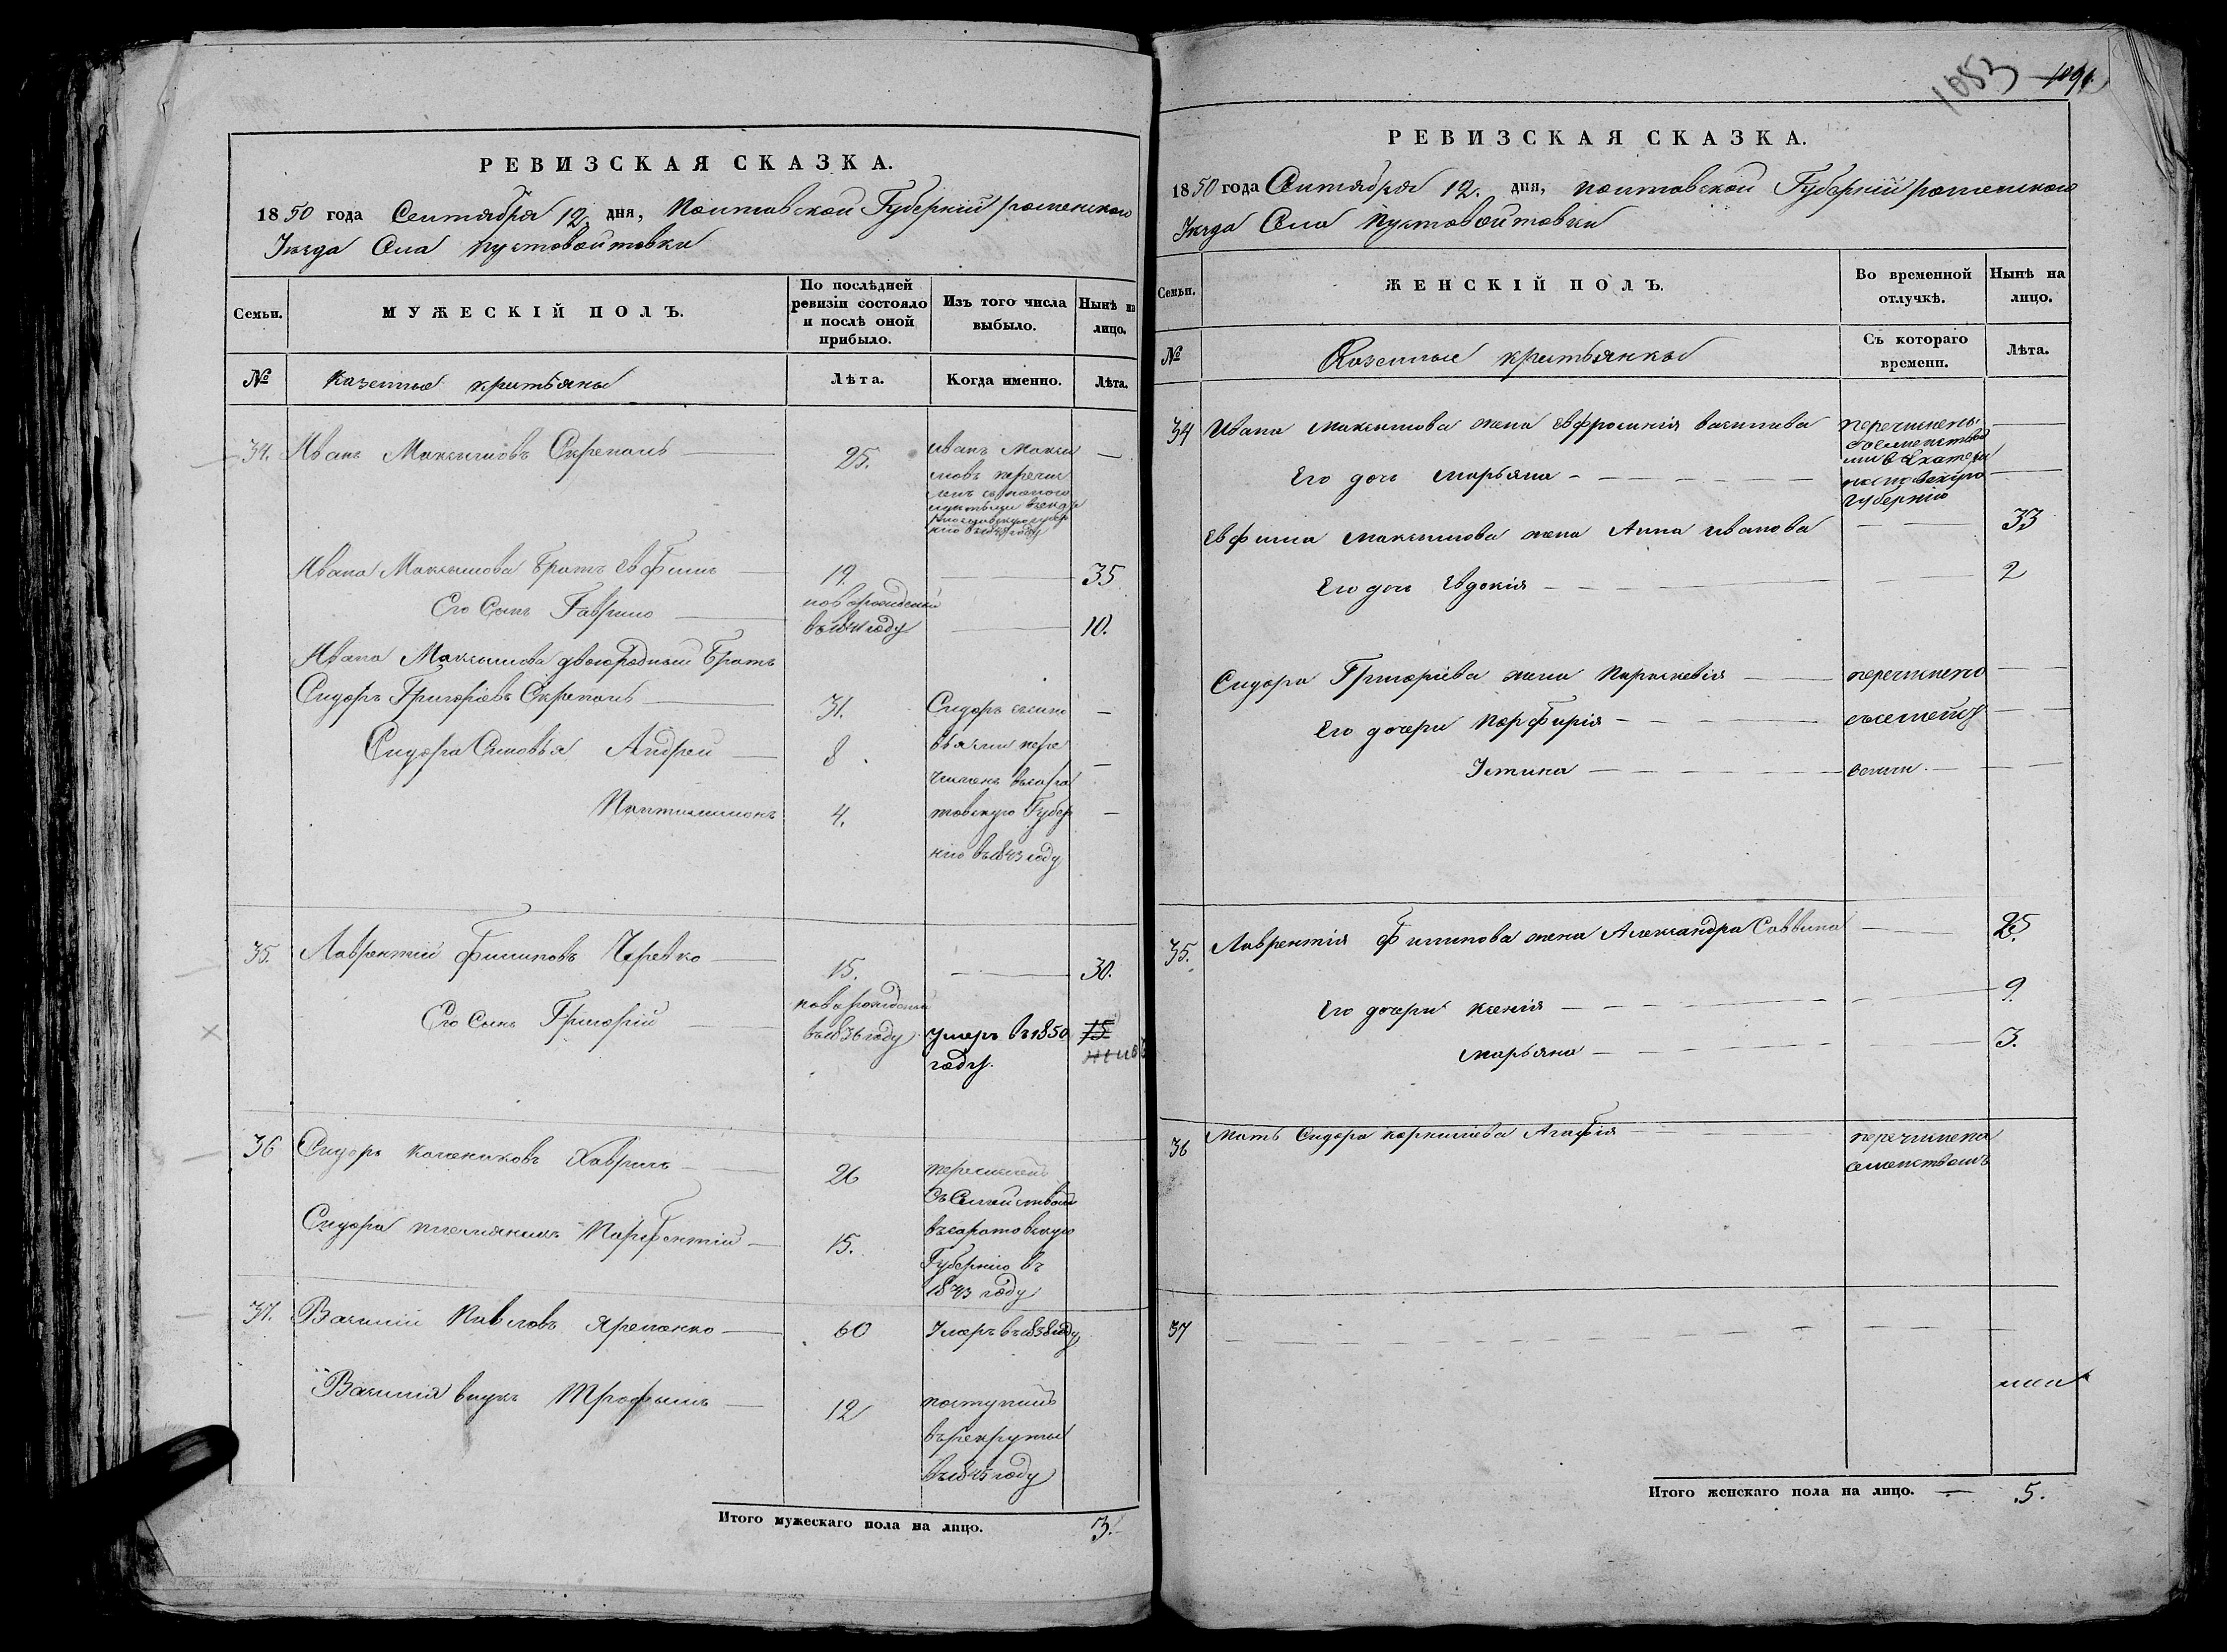 РЕВИЗСКАЯ СКАЗКА.
1850 года Сентября 12 дня, Полтавской Губерніи роменского
Уезда Села Пустовойтовки
Семьи.
МУЖЕСКІЙ ПОЛЪ.
По послѣдней ревизіи состояло и послѣ оной прибыло.
Изъ того числа выбыло.
Нынѣ на лицо.
№
Казенные крестьяны
Лѣта.
Когда именно.
Лѣта.
34. Иванъ Максимовъ Скрепаль 25. Иванъ Макси
мовъ перечи
въ 1843 году
Ивана Максимова Братъ Евфимъ 19. 35
Его Сынъ Гаврило новорожденый
въ 1841 году 10.
Ивана Максимова двоюродный Братъ
Сидоръ Григоріевъ Скрепаль 31. Сидоръ
Сидора Сыновья Андрей 8
численъ въ сара
Пантилимонъ 4. товскую Губер
нію въ 1843 году
35. Лаврентій Филиповъ Черевко 15. 30.
Его Сынъ Григорій новорожденый
въ 1836 году умеръ в 1850 году. 15
36 Сидоръ Хаврич 26 перечислен
съ Семействомъ
Сидора племянникъ Парфентій 15. въ саратовскую
Губернію въ
1843 году
37. Василій Павловъ Яременко 60 Умеръ въ 1838 году
Василія внукъ Трофимъ 12 поступилъ
въ рекруты
въ 1845 году
Итого мужескаго пола на лицо. 3.
1053 1091.
РЕВИЗСКАЯ СКАЗКА.
1850 года Сентября 12. дня, полтавской Губерніи роменского
Уезда Села Пустовойтовки
Семьи.
ЖЕНСКІЙ ПОЛЪ.
Во временной отлучкѣ.
Нынѣ на лицо.
№
Казенные крестьянки
Съ котораго времени.
Лѣта.
34 Ивана Максимова жена Евфросинія василиева перечислены
Его доч Марьяна
губернію
Евфима максимова жена Анна иванова 33
Его доч Евдокія 2
Сидора Григоріева жена Параскевія перечислена
Его дочери Порфирія
Устина
35. Лаврентія Филипова жена Александра Саввина 25.
Его дочери Ксенія 9.
Марьяна 3.
36 Мать Сидора корниліева Агафія перечислена
семействомъ
37
Итого женскаго пола на лицо. 5.